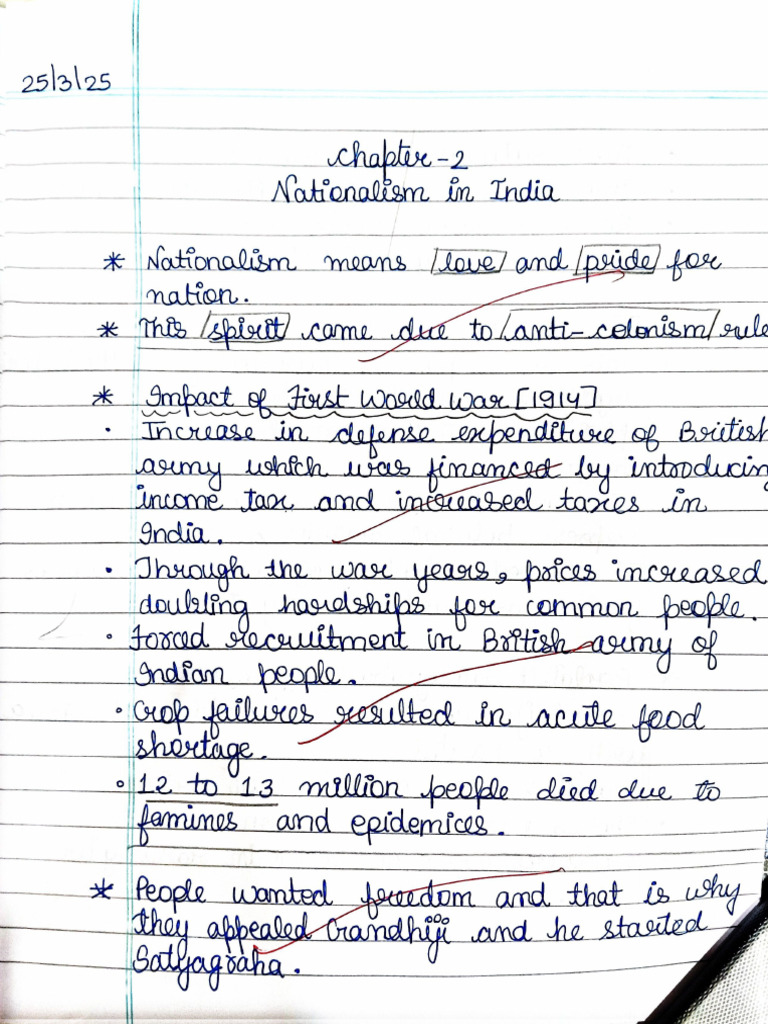 25/3/25
Chapter-2
Nationalism in India
* Nationalism means love and pride for
nation.
* This spirit came due to anti-colonism rule
* Impact of First World War [1914]
• Increase in defense expenditure of British
army which was financed by introducing
income tax and increased taxes in
India.
• Through the war years, prices increased
doubling hardships for common people.
• Forced recruitment in British army of
Indian people.
• Crop failures resulted in acute food
shortage.
• 12 to 13 million people died due to
famines and epidemices.
* People wanted freedom and that is why
they appealed Gandhiji and he started
Satyagraha.